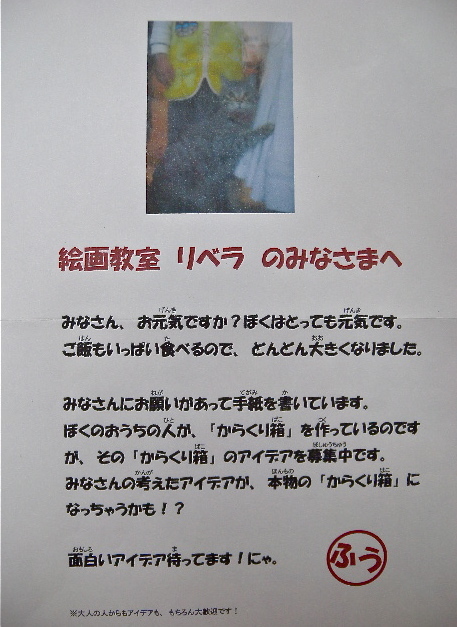 絵画教室 リベラ のみなさまへ
みなさん、お元気ですか？ぼくはとっても元気です。
ご飯もいっぱい食べるので、どんどん大きくなりました。
みなさんにお願いがあって手紙を書いています。
ぼくのおうちの人が、「からくり箱」を作っているのです
が、その「からくり箱」のアイデアを募集中です。
みなさんの考えたアイデアが、本物の「からくり箱」に
なっちゃうかも！？
面白いアイデア待ってます！にゃ。
ふう
※大人の人からもアイデアも、もちろん大歓迎です！